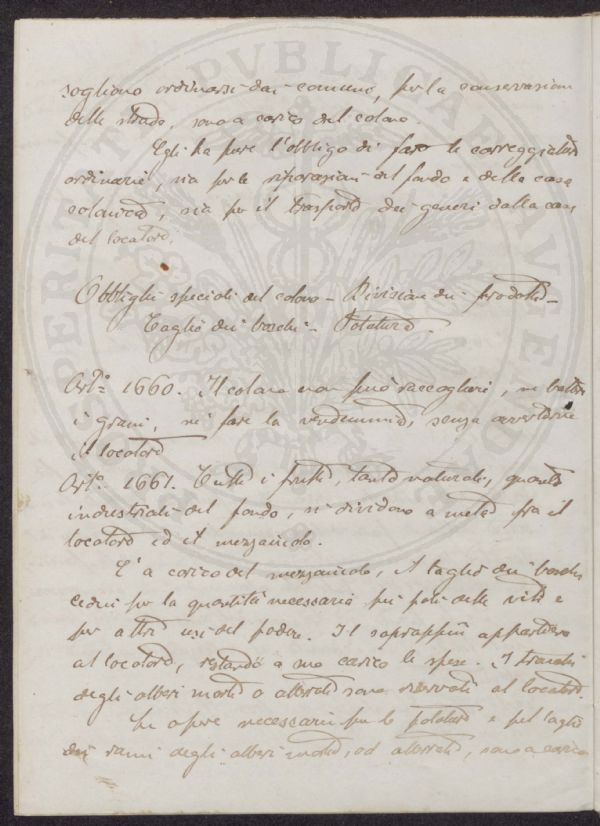 sogliono ordinarsi dai comuni, per la conservazione
delle strade, sono a carico del colono.
Egli ha pure l'obbligo di fare le carreggiature
ordinarie, sia per le riparazioni del fondo e della casa
colonica, sia per il trasporto dei generi dalla casa
del locatore.
Obblighi speciali del colono - Divisione dei prodotti -
Taglio dei boschi - Potatura.
Art.º 1660. Il colono non può raccogliere, nè battere
i grani, nè fare la vendemmia, senza avvertirne
il locatore
Art.º 1661. Tutti i frutti, tanto naturali, quanto
industriali del fondo, si dividono a metà fra il
locatore ed il mezzaiuolo.
E' a carico del mezzaiuolo, il taglio dei boschi
cedui per la quantità necessaria pei pali delle viti e
per altri usi del podere. Il soprappiù appartiene
al locatore, restando a suo carico le spese. I tronchi
degli alberi morti o atterrati sono riservati al locatore.
Le opere necessarie per la potatura e pel taglio
dei rami degli alberi morti, od atterrati, sono a carico